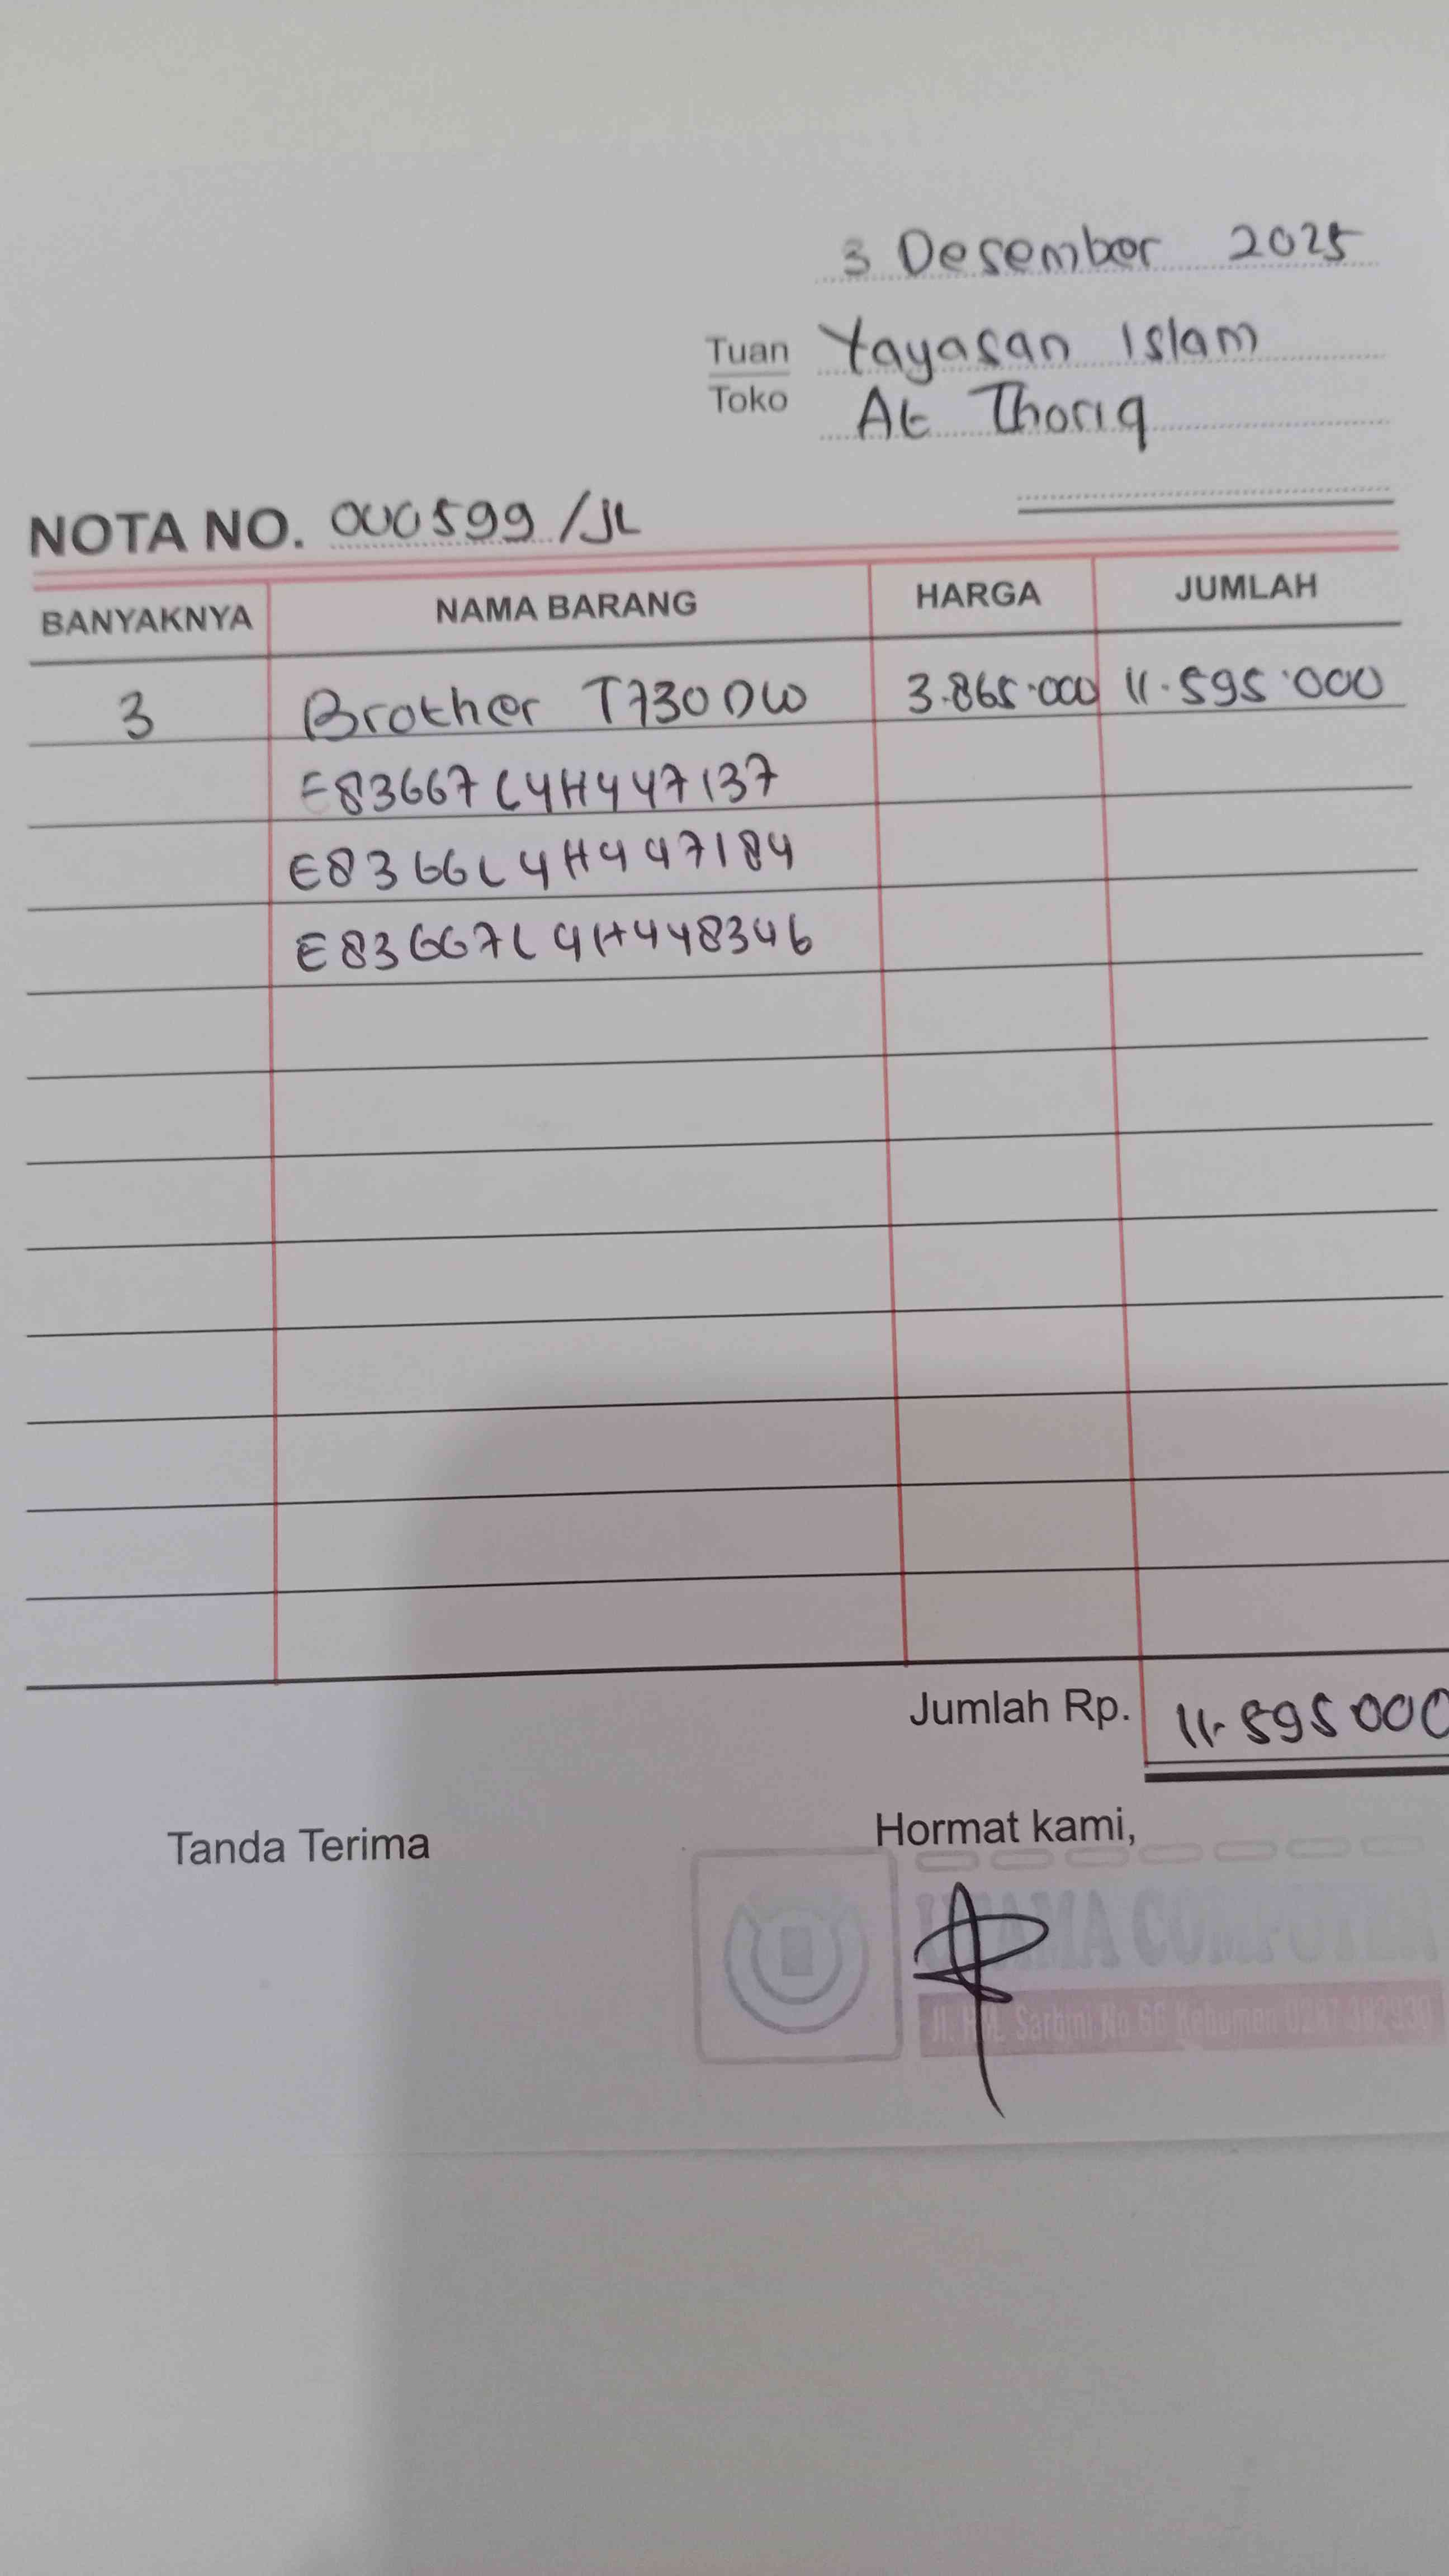 3 Desember 2025
Tuan Yayasan Islam
Toko At Thoriq
NOTA NO. 000599/JL
BANYAKNYA NAMA BARANG HARGA JUMLAH
3 Brother T730DW 3.865.000 11.595.000
E83667L4H447137
E8366L4H447184
E83667L4H448346
Jumlah Rp. 11.595 000
Tanda Terima Hormat kami,
UTAMA COMPUTER
Jl. Sarbini No 66 Kebumen 0287 382930